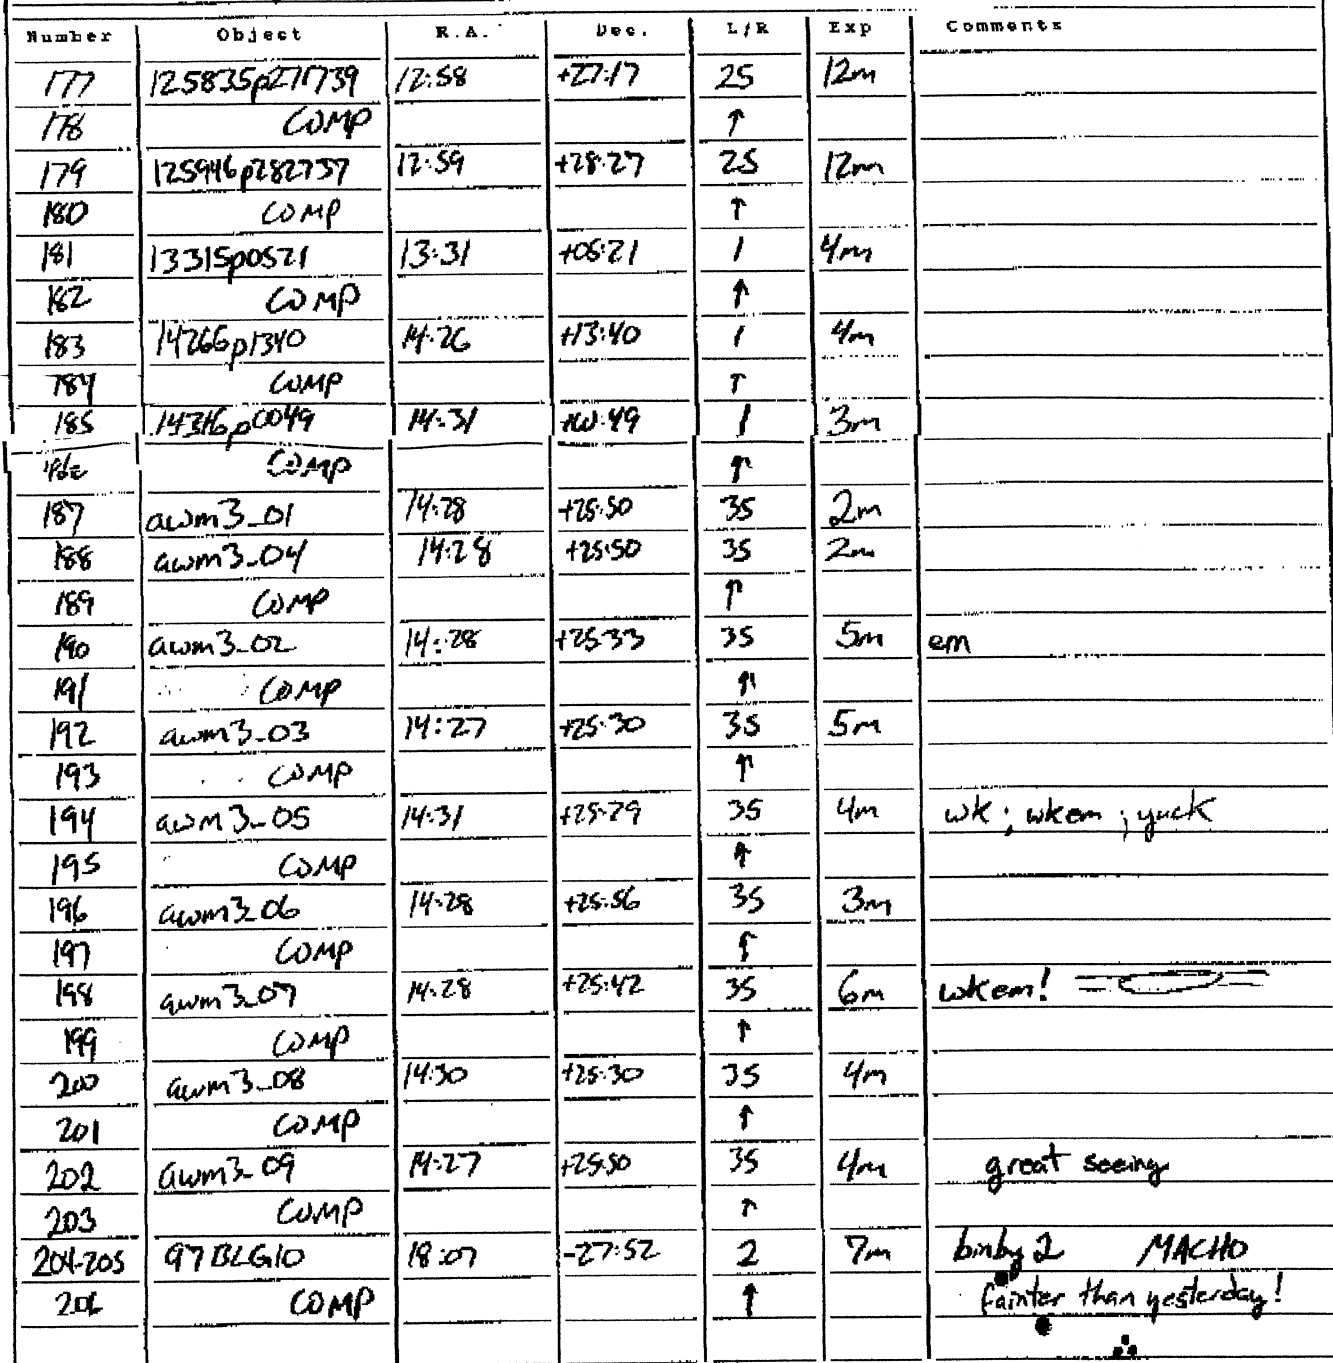 Number Object R.A. Dec. L/R Exp Comments
177 125835p271739 12:58 +27:17 25 12m
178 COMP ↑
179 125946p282737 12:59 +28:27 25 12m
180 COMP ↑
181 13315p0521 13:31 +05:21 1 4m
182 COMP ↑
183 14266p1340 14:26 +13:40 1 4m
184 COMP ↑
185 14316p0049 14:31 +00:49 1 3m
186 COMP ↑
187 awm3_01 14:28 +25:50 35 2m
188 awm3_04 14:28 +25:50 35 2m
189 COMP ↑
190 awm3_02 14:28 +25:33 35 5m em
191 COMP ↑
192 awm3_03 14:27 +25:30 35 5m
193 COMP ↑
194 awm3_05 14:31 +25:29 35 4m wk ; wkem ; yuck
195 COMP ↑
196 awm3_06 14:28 +25:56 35 3m
197 COMP ↑
198 awm3_07 14:28 +25:42 35 6m wkem!
199 COMP ↑
200 awm3_08 14:30 +25:30 35 4m
201 COMP ↑
202 awm3_09 14:27 +25:50 35 4m great seeing
203 COMP ↑
204-205 97BLG10 18:07 -27:52 2 7m binby 2 MACHO
206 COMP ↑ fainter than yesterday!